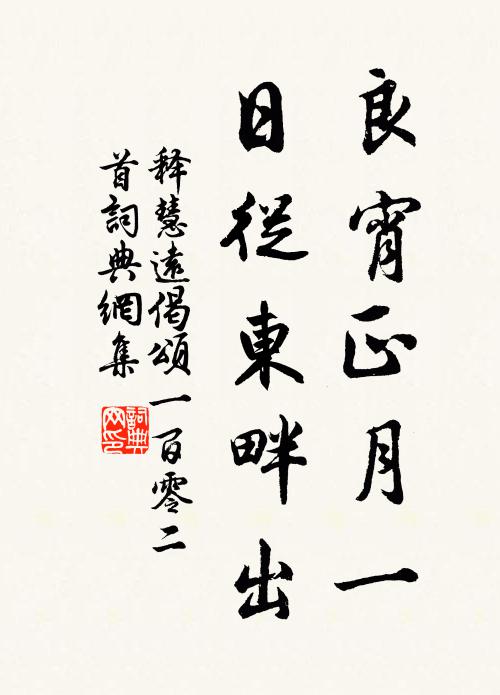 良宵正月一
日從東畔出
釋慧遠偈頌一百零二
首詞典網集
詞典
网印